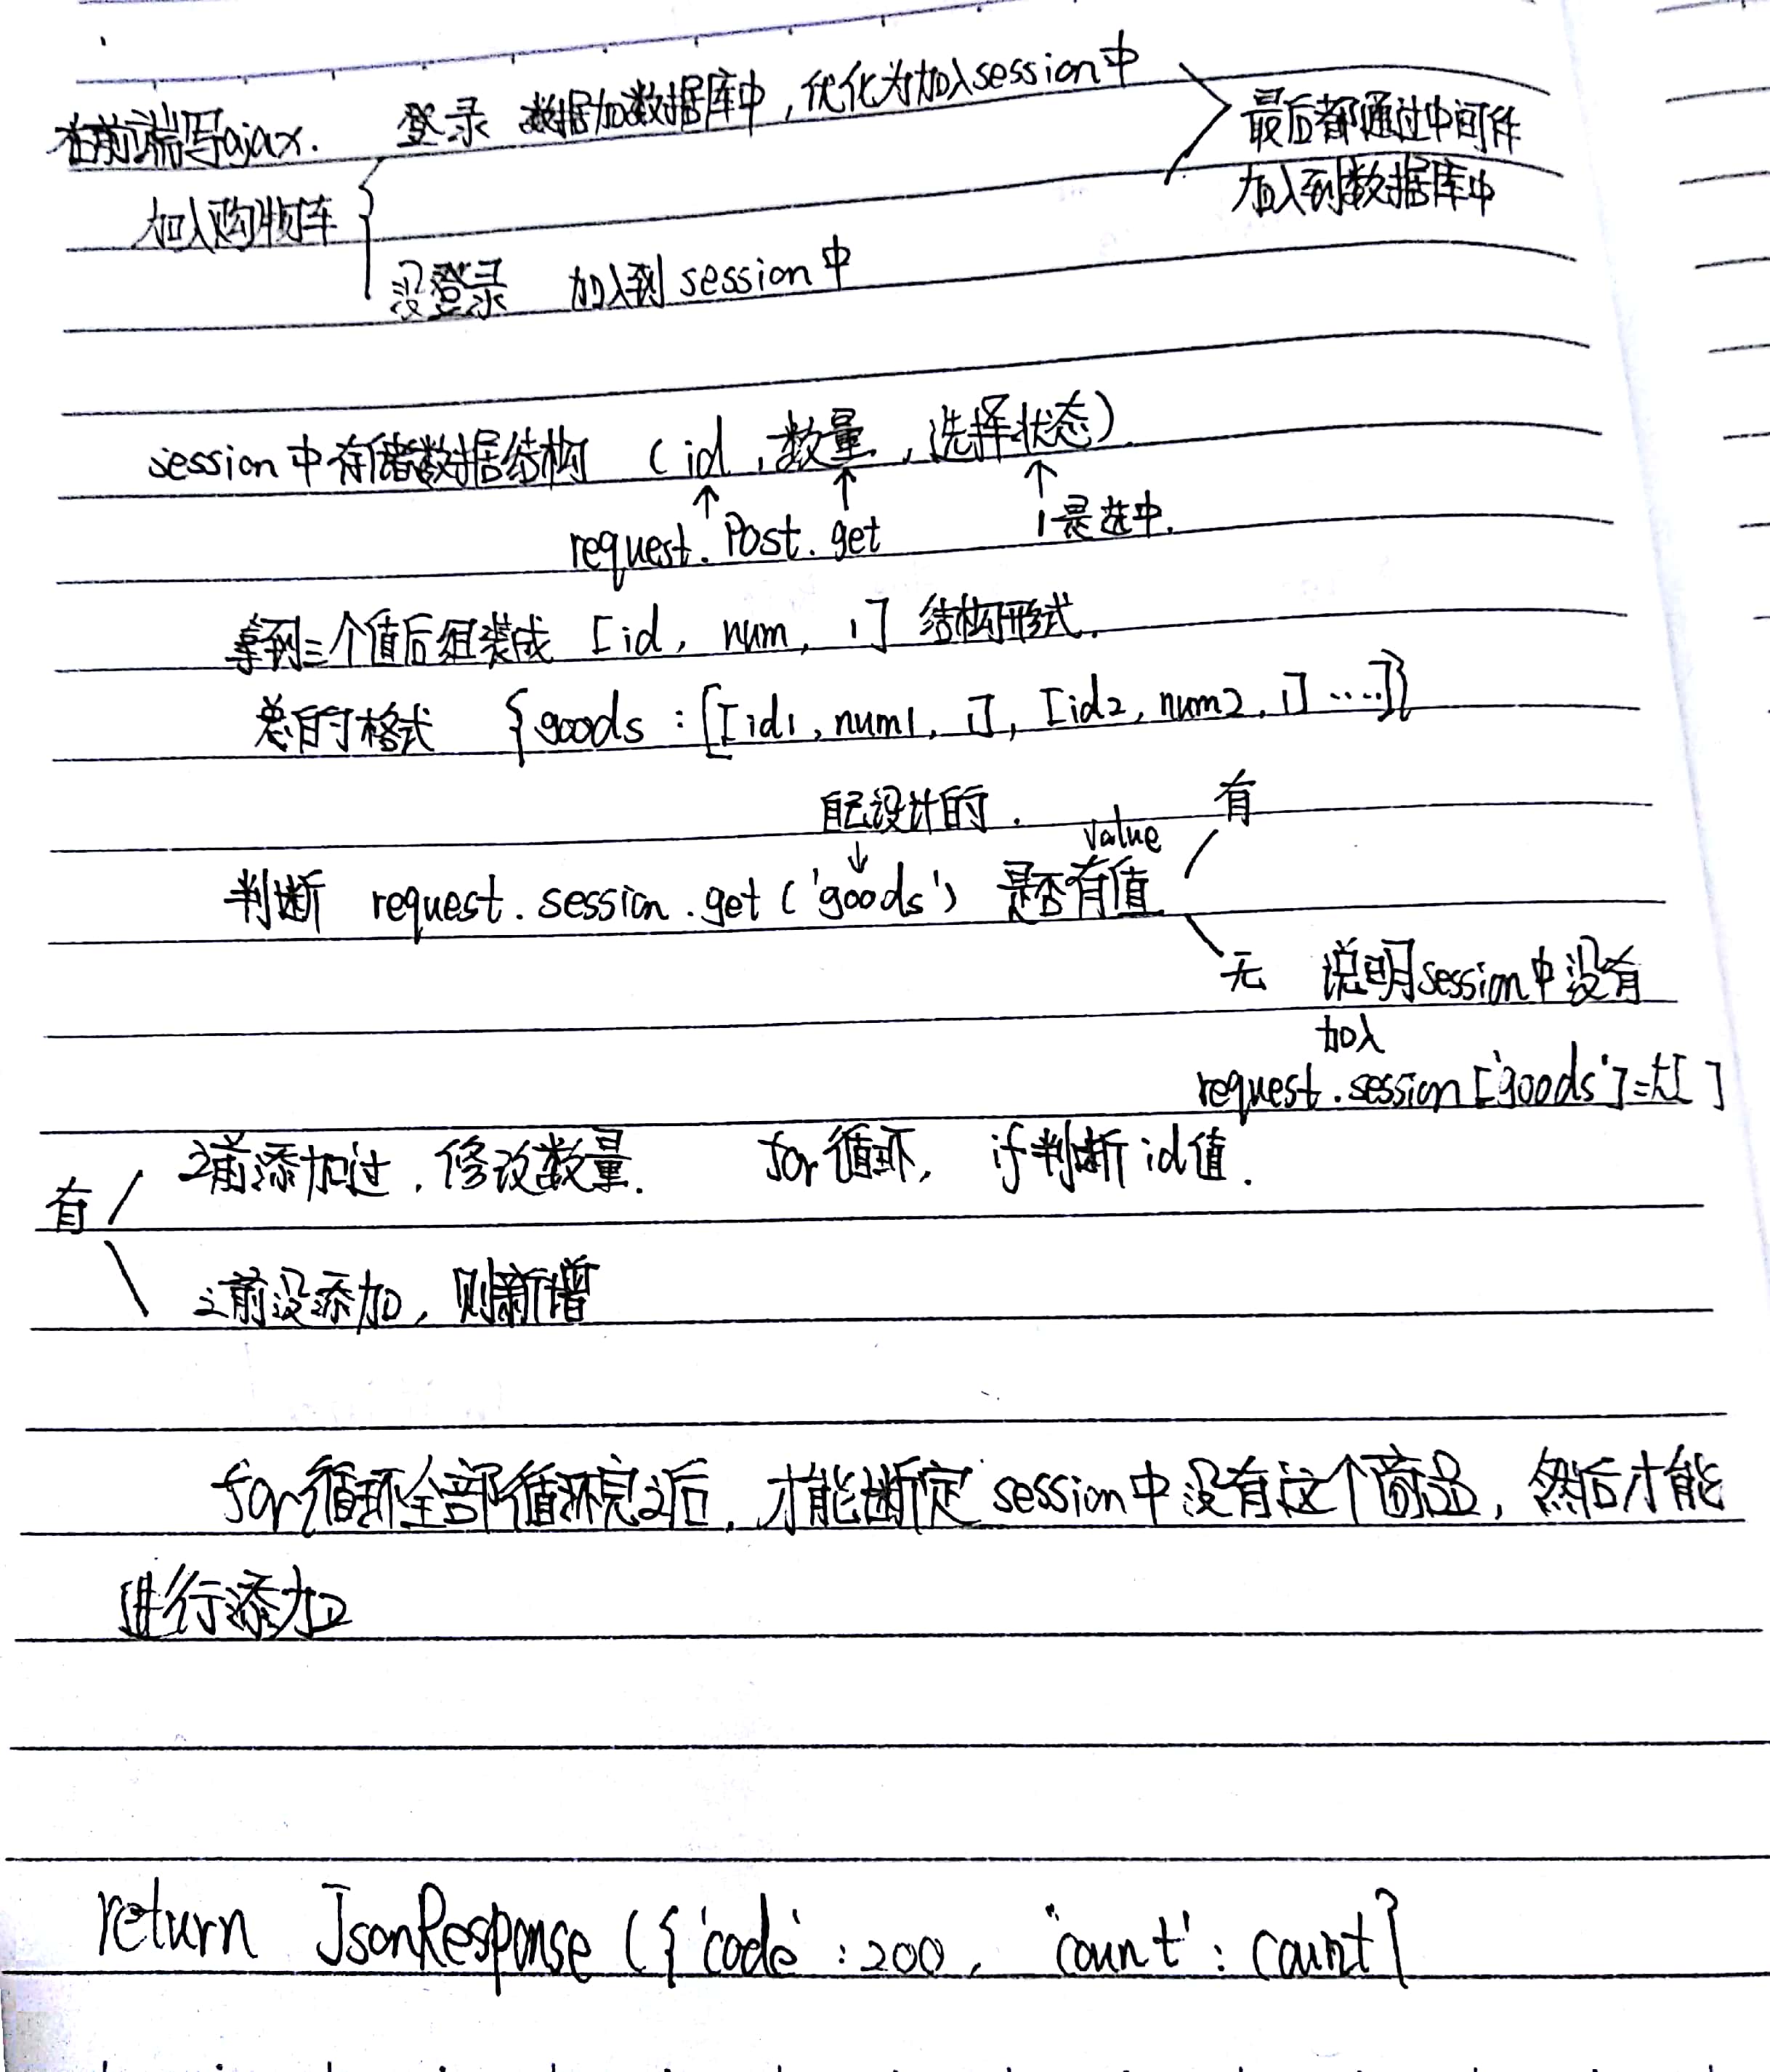 在前端写ajax. 登录 数据加数据库中,优化为加入session中
最后都通过中间件
加入到数据库中
加入购物车
没登录 加到 session中
session中存储数据结构 (id,数量,选择状态)
↑ ↑ ↑
request.Post.get 1是选中.
拿到三个值后组装成 [id, num, 1] 结构形式.
总的格式 {goods:[[id1,num1,1],[id2,num2,1]....]}
自己设计的. 有
↓ value
判断 request.session.get('goods') 是否有值
无 说明session中没有
加入
request.session['goods']=[]
之前添加过,修改数量. for循环, if判断id值.
有
之前没添加,则新增
for循环全部循环完之后,才能断定session中没有这个商品,然后才能
进行添加
return JsonResponse({'code':200, 'count':count}